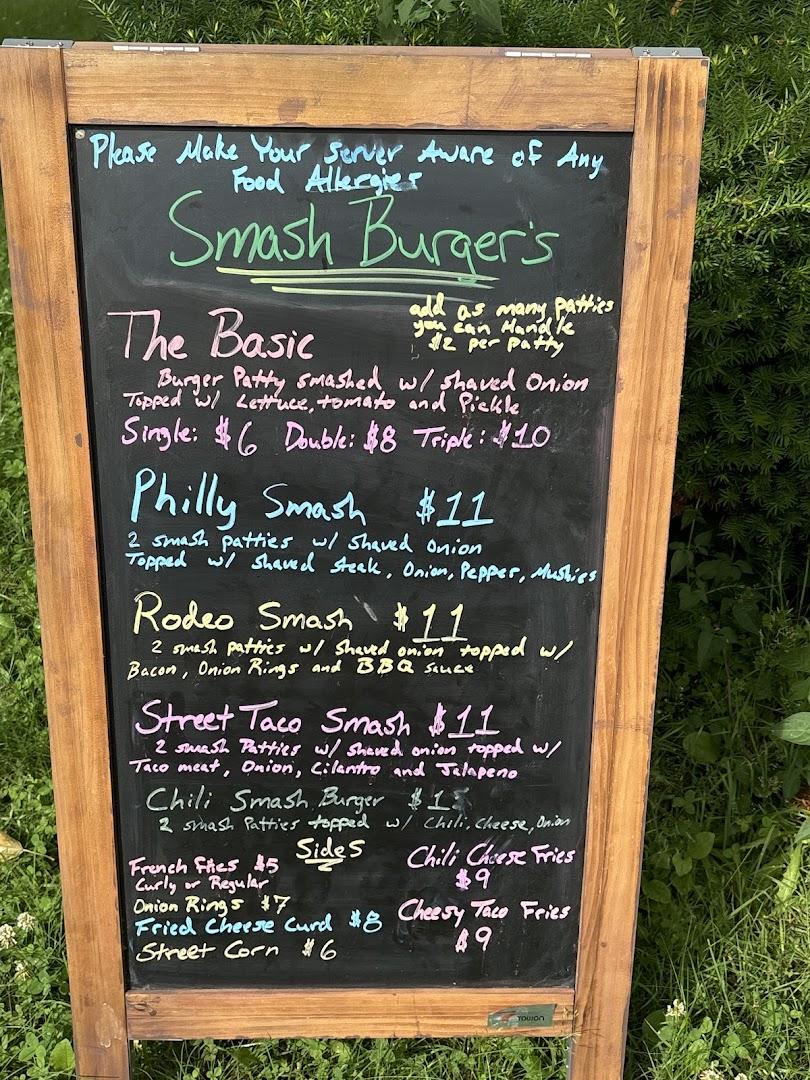 Please Make Your Server Aware of Any
Food Allergies
Smash Burger's
add as many patties
you can Handle
$2 per patty
The Basic
Burger Patty smashed w/ shaved Onion
Topped w/ Lettuce, tomato and Pickle
Single: $6 Double: $8 Triple: $10
Philly Smash $11
2 smash patties w/ shaved onion
Topped w/ shaved steak, Onion, Pepper, Mushies
Rodeo Smash $11
2 smash patties w/ shaved onion topped w/
Bacon, Onion Rings and BBQ sauce
Street Taco Smash $11
2 smash Patties w/ shaved onion topped w/
Taco meat, Onion, Cilantro and Jalapeno
Chili Smash Burger
2 smash Patties topped w/ Chili, Cheese, Onion
Sides
French Fries $5
Curly or Regular
Onion Rings $7
Fried Cheese Curd $8
Street Corn $6
Chili Cheese Fries
$9
Cheesy Taco Fries
$9